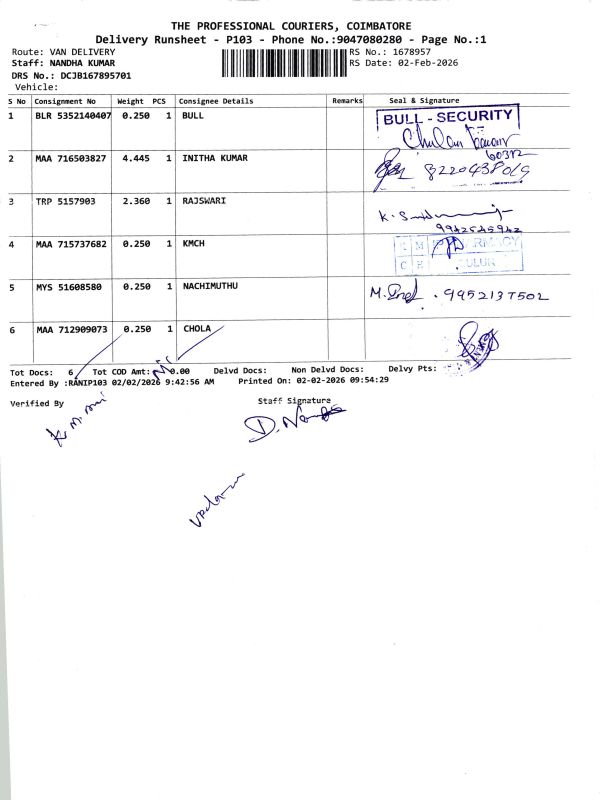 THE PROFESSIONAL COURIERS, COIMBATORE
Delivery Runsheet - P103 - Phone No.:9047080280 - Page No.:1
Route: VAN DELIVERY RS No.: 1678957
Staff: NANDHA KUMAR RS Date: 02-Feb-2026
DRS No.: DCJB167895701
Vehicle:
S No Consignment No Weight PCS Consignee Details Remarks Seal & Signature
1 BLR 5352140407 0.250 1 BULL BULL - SECURITY
60312
2 MAA 716503827 4.445 1 INITHA KUMAR
3 TRP 5157903 2.360 1 RAJSWARI
9942545942
4 MAA 715737682 0.250 1 KMCH
5 MYS 51608580 0.250 1 NACHIMUTHU 9952137502
6 MAA 712909073 0.250 1 CHOLA
Tot Docs: 6 Tot COD Amt: 0.00 Delvd Docs: Non Delvd Docs: Delvy Pts:
Entered By :RANIP103 02/02/2026 9:42:56 AM Printed On: 02-02-2026 09:54:29
Verified By Staff Signature